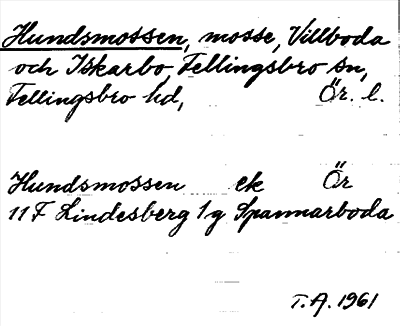 Hundsmossen, mosse, Villboda
och Iskarbo, Fellingsbro sn,
Fellingsbro hd, Ör. l.
Hundsmossen ek Ör
11F Lindesberg 1g Spannarboda
T.A. 1961